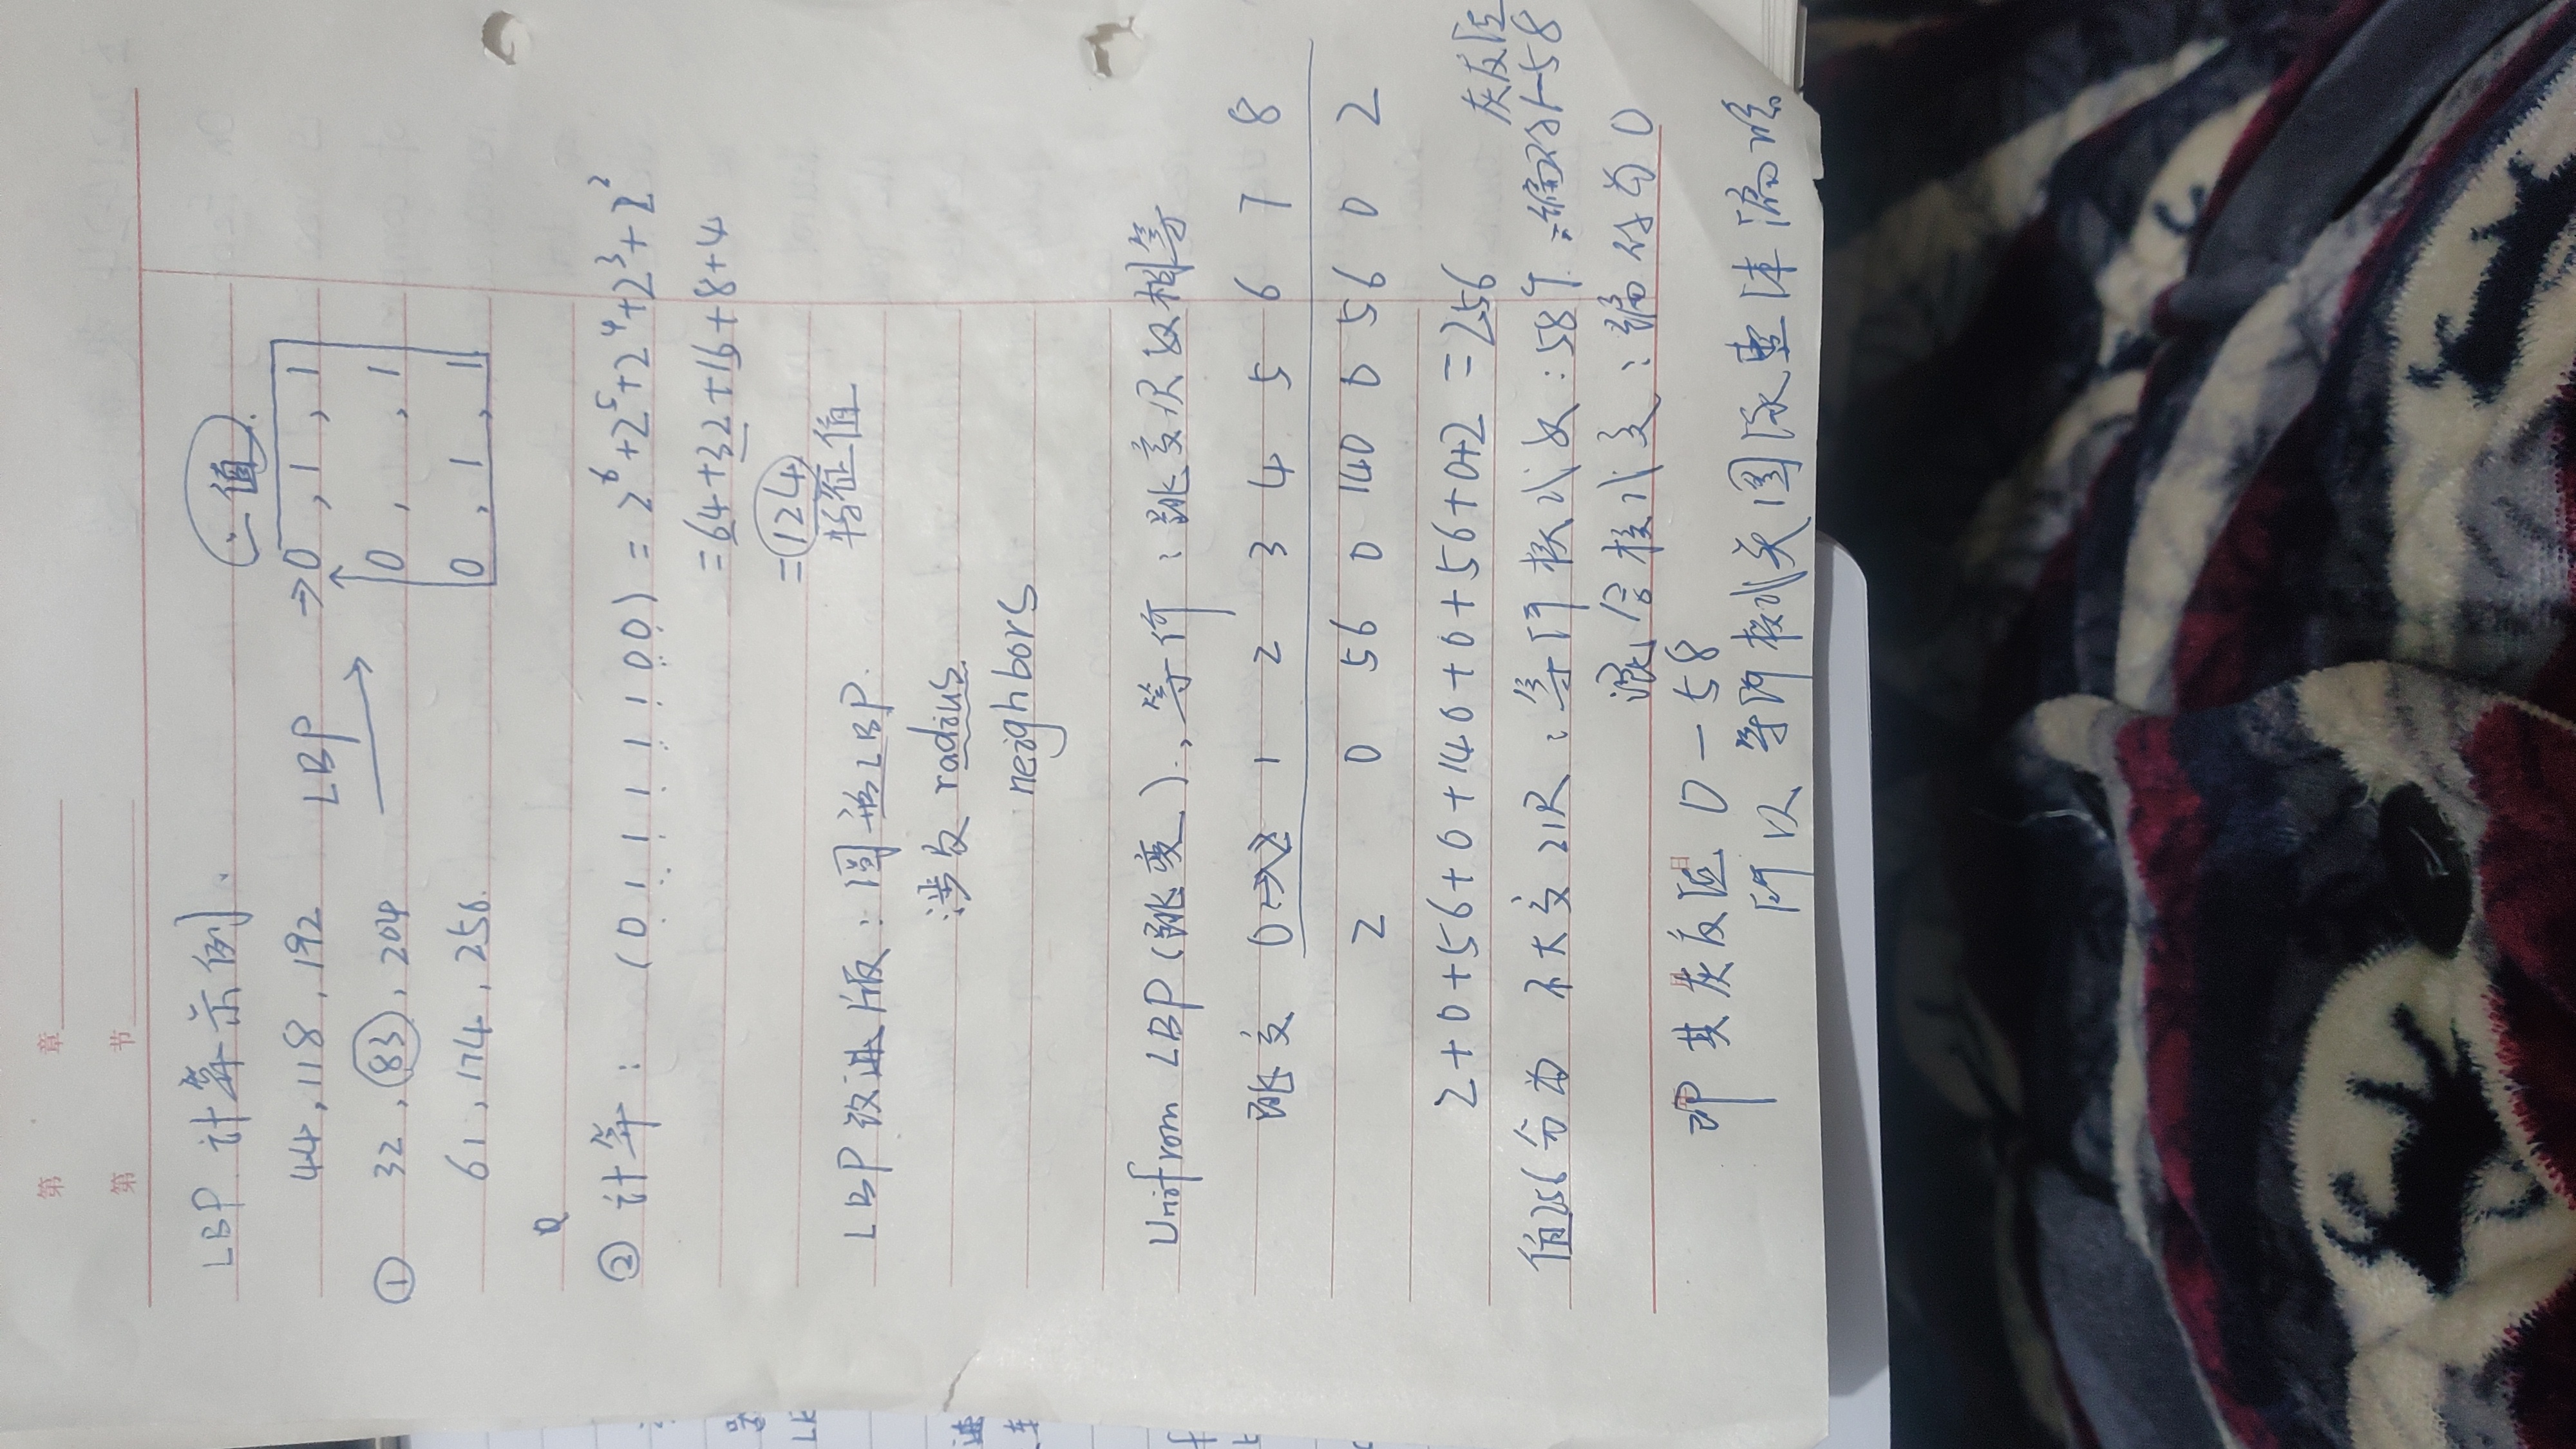 第 章
第 节
LBP 计算示例.
二值.
44, 118, 192 LBP → 0, 1, 1
① 32, 83, 204 0, , 1
61, 174, 250. 0, 1, 1
② 计算: (0 1 1 1 1 1 0 0) = 2⁶+2⁵+2⁴+2³+2²
=64+32+16+8+4
=124
特征值
LBP 改进版: 圆形LBP.
涉及 radius
neighbors
Unifrom LBP(跳变). 等价: 跳变次数相等
跳变 0 1 2 3 4 5 6 7 8
2 0 56 0 140 0 56 0 2
2+0+56+0+140+0+56+0+2 = 256
值256分为 不大变2次: 等价模式数: 58个 :编码为1-58
灰度值
混合模式: 编码为0
即其灰度值 0-58
所以 等价模式关 图像整体偏暗